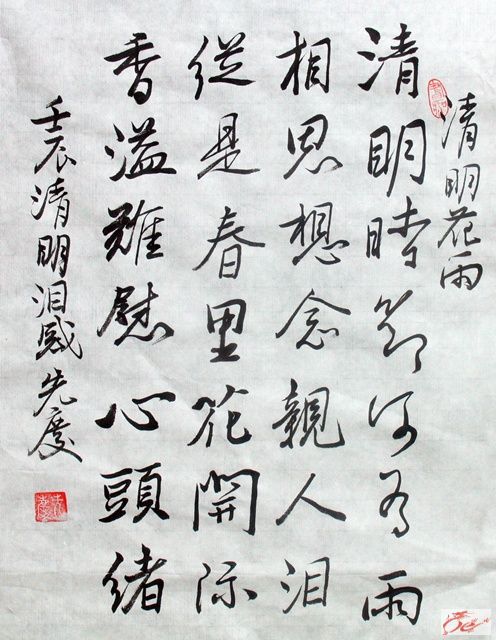 清明花雨
清明時節何為雨
相思想念親人泪
從是春里花開际
香溢難慰心頭緒
壬辰清明泪感先慶